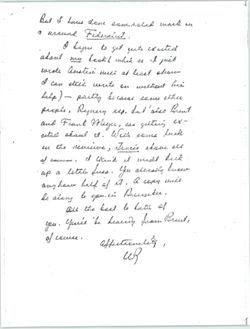 But I have done some work in
a around Federalist.
I begin to get quite excited
about my book (which as I just
wrote Anastein will at least show
I can still write on without his
help) — partly because some other
people, Regnery esp. but also Brent
and Frank Meyer, are getting ex-
cited about it. With some luck
in the reviews, Times above all
of course, I think it might kick
up a little fuss. You already know
anyhow half of it. A copy will
be along to you in December.
All the best to both of
you. You'll be hearing from Brent,
of course.
Affectionately,